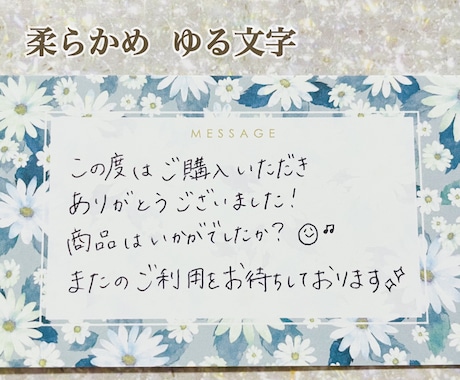 柔らかめ ゆる文字
MESSAGE
この度はご購入いただき
ありがとうございました!
商品はいかがでしたか?☺♫
またのご利用をお待ちしております✧✧